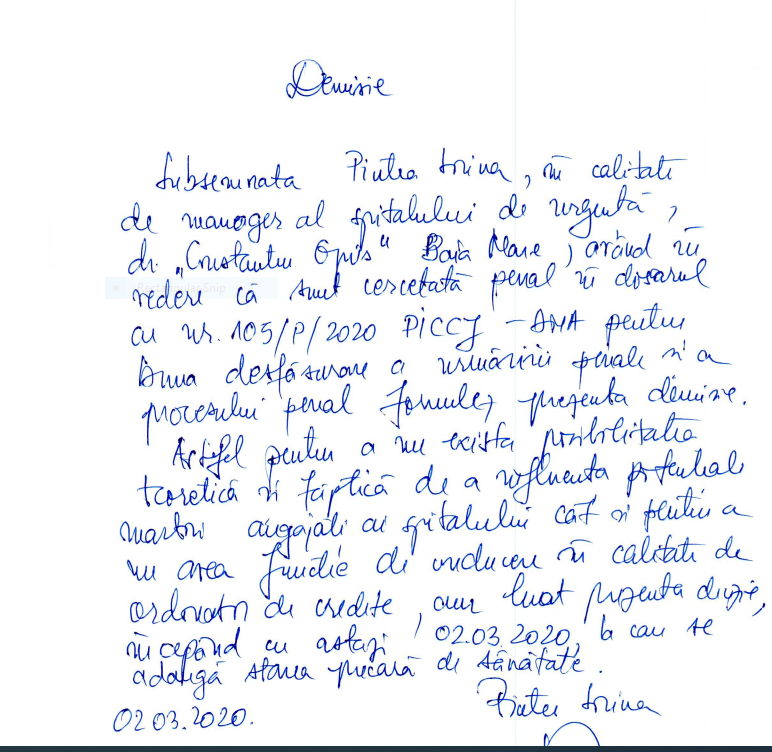 Demisie
Subsemnata Pintea Sorina, în calitate
de manager al spitalului de urgență,
dr. „Constantin Opriș" Baia Mare, având în
vedere că sunt cercetată penal în dosarul
cu nr. 105/P/2020 PICCJ - DNA pentru
buna desfășurare a urmăririi penale și a
procesului penal formulez prezenta demisie.
Astfel pentru a nu exista posibilitatea
teoretică și faptică de a influența potențiali
martori angajați ai spitalului cât și pentru a
nu avea funcție de conducere în calitate de
ordonator de credite, am luat prezenta decizie,
începând cu astăzi, 02.03.2020, la care se
adaugă starea precară de sănătate.
Pintea Sorina
02 03.2020.